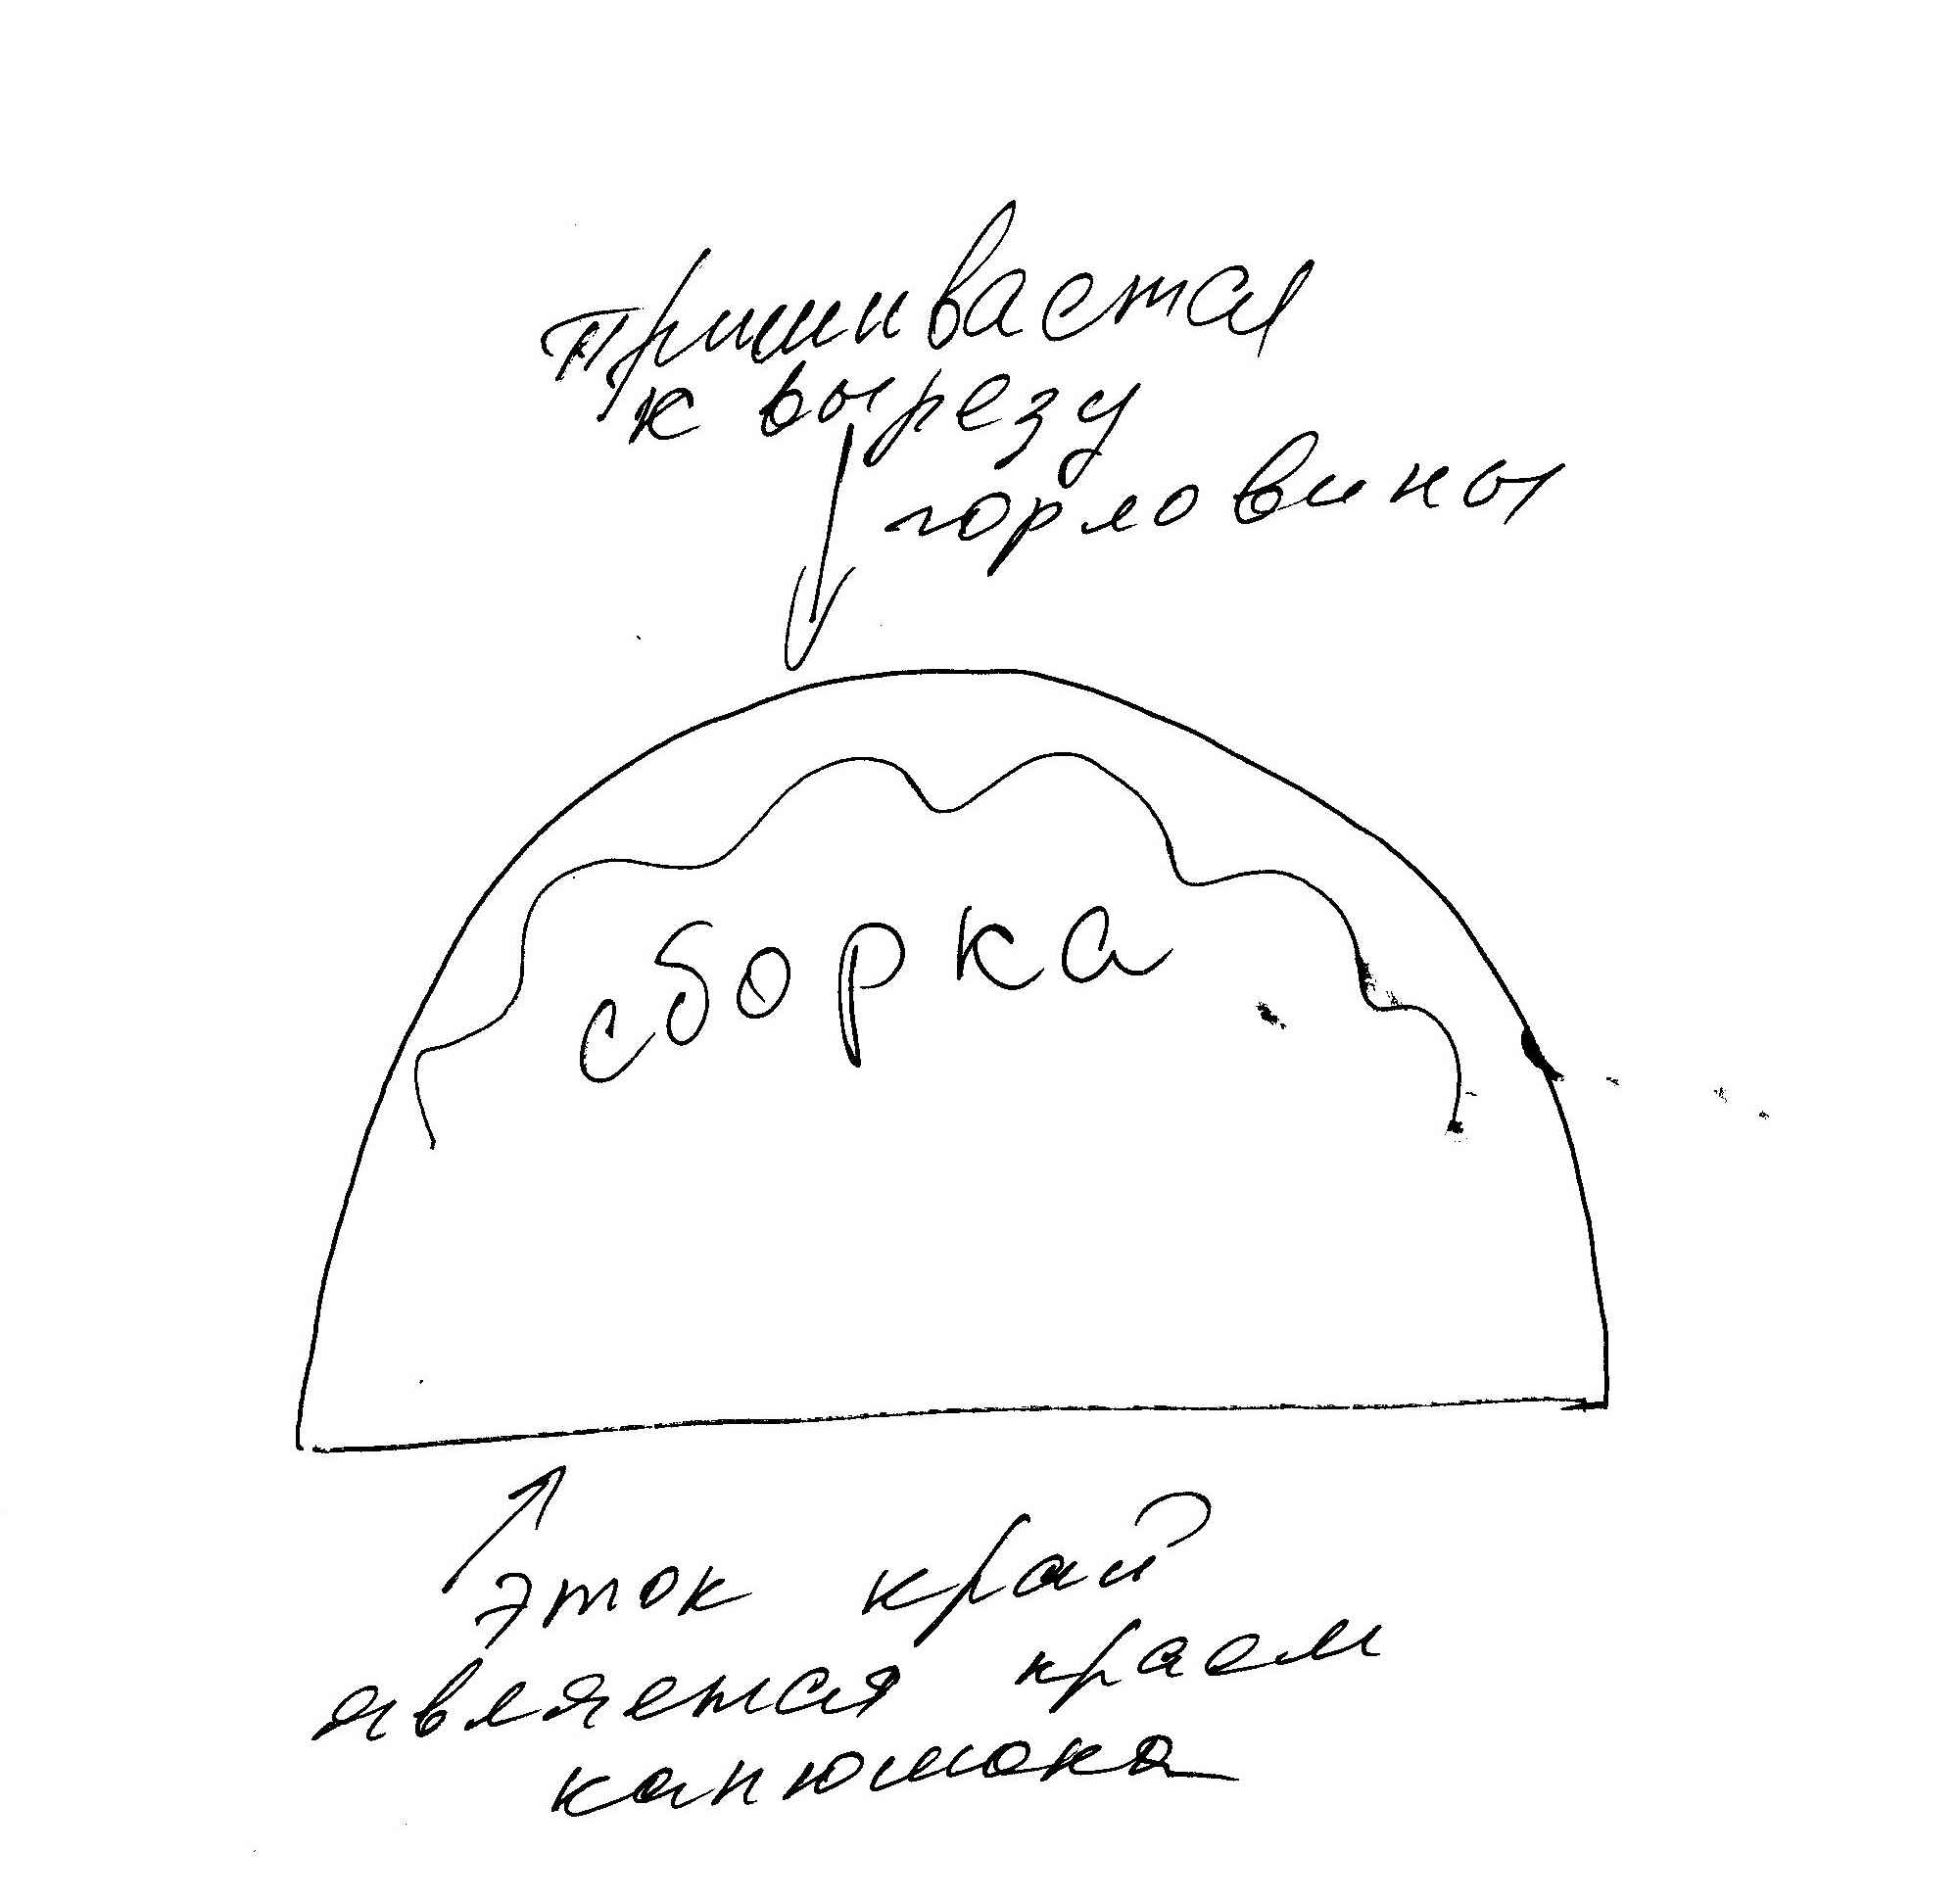 пришивается
к вырезу
горловины
сборка
эток край
является краем
капюшона